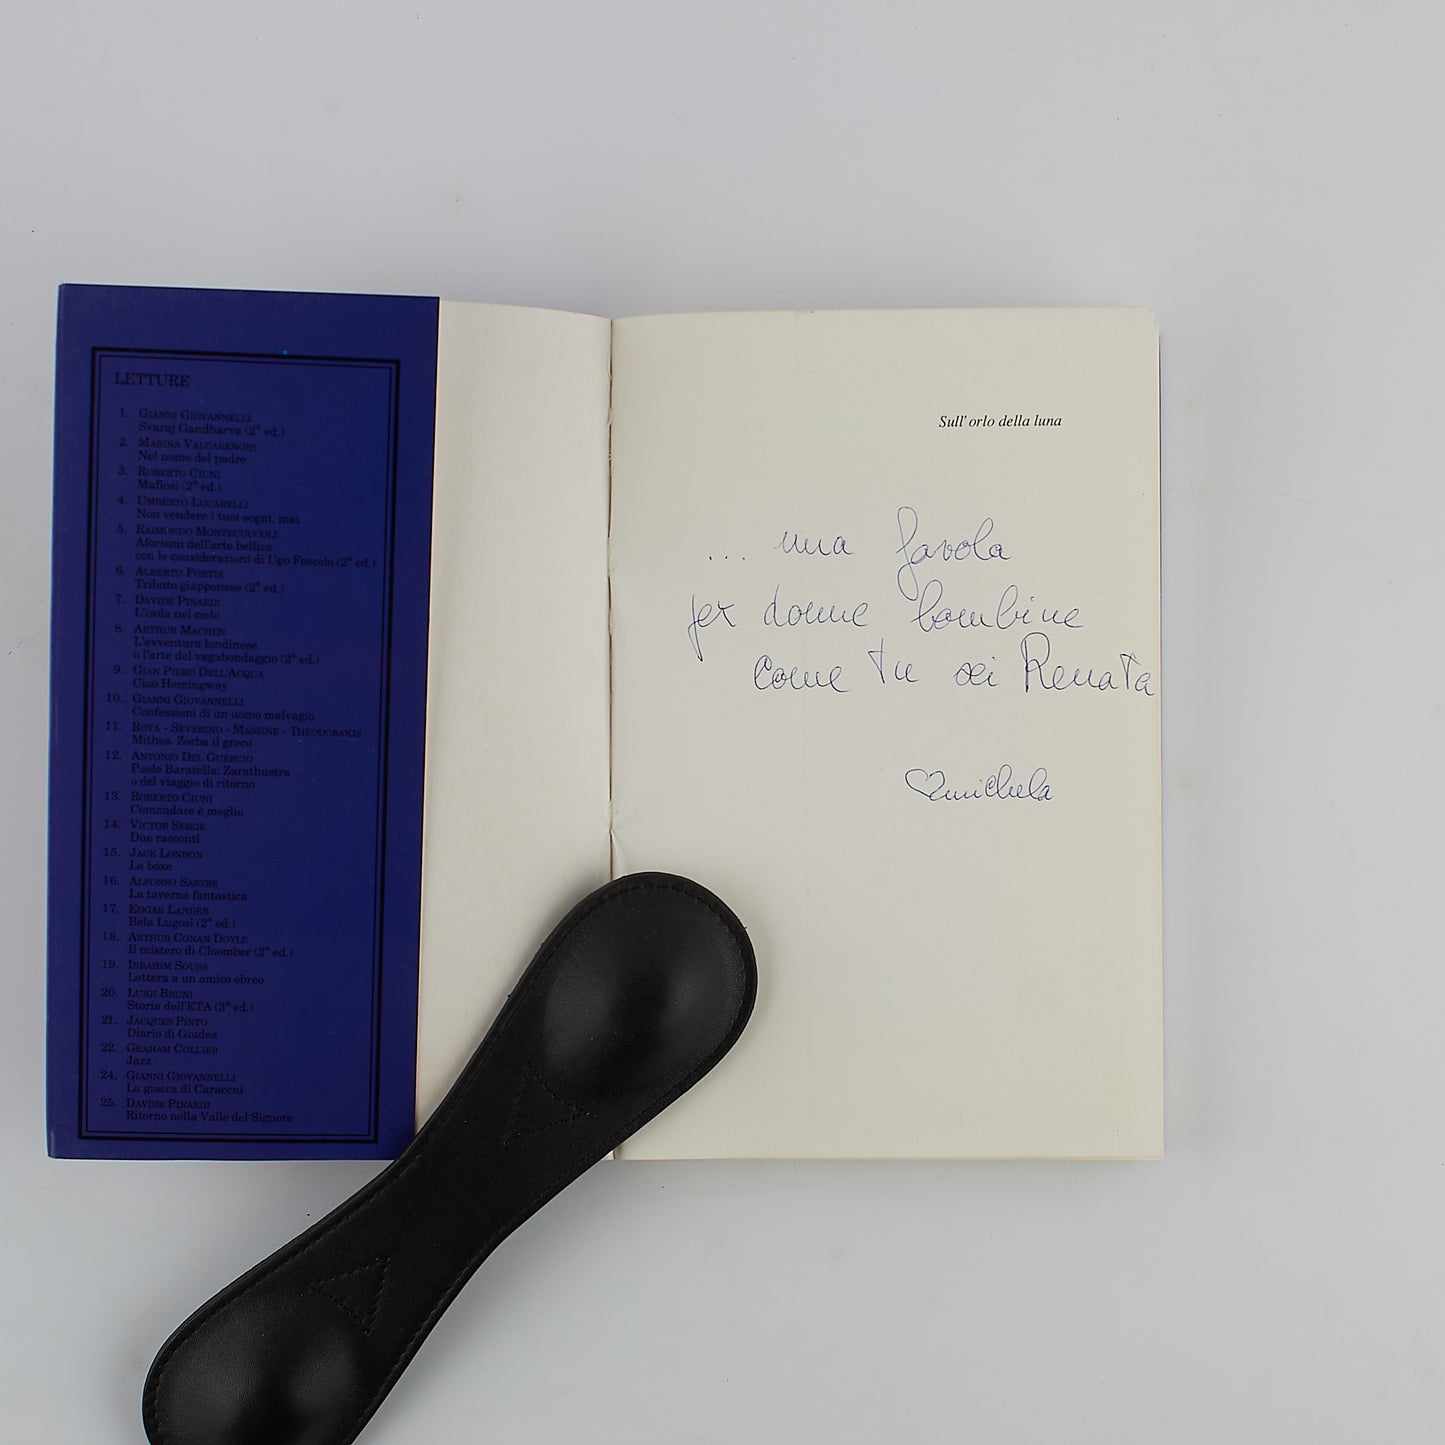 LETTURE
1. GIANNI GIOVANNELLI
Svaraj Gandharva (2ª ed.)
2. MARINA VALCARENGHI
Nel nome del padre
3. ROBERTO CIUNI
Mafiosi (2ª ed.)
4. UMBERTO LUCARELLI
Non vendere i tuoi sogni, mai
5. RAIMONDO MONTECUCCOLI
Aforismi dell'arte bellica
con le considerazioni di Ugo Foscolo (2ª ed.)
6. ALBERTO FORTIS
Tributo giapponese (2ª ed.)
7. DAVIDE PINARDI
L'isola nel cielo
8. ARTHUR MACHEN
L'avventura londinese
o l'arte del vagabondaggio (2ª ed.)
9. GIAN PIERO DELL'ACQUA
Ciao Hemingway
10. GIANNI GIOVANNELLI
Confessioni di un uomo malvagio
11. ROTA - SEVERINO - MASSINE - THEODORAKIS
Mithos. Zorba il greco
12. ANTONIO DEL GUERCIO
Paolo Baratella: Zarathustra
o del viaggio di ritorno
13. ROBERTO CIUNI
Comandare è meglio
14. VICTOR SERGE
Due racconti
15. JACK LONDON
La boxe
16. ALFONSO SASTRE
La taverna fantastica
17. EDGAR LANDER
Bela Lugosi (2ª ed.)
18. ARTHUR CONAN DOYLE
Il mistero di Cloomber (2ª ed.)
19. IBRAHIM SOUSS
Lettera a un amico ebreo
20. LUIGI BRUNI
Storia dell'ETA (3ª ed.)
21. JACQUES PINTO
Diario di Giudea
22. GRAHAM COLLIER
Jazz
24. GIANNI GIOVANNELLI
La giacca di Caraceni
25. DAVIDE PINARDI
Ritorno nella Valle del Signore
Sull'orlo della luna
... una favola
per donne bambine
come tu sei Renata
michela